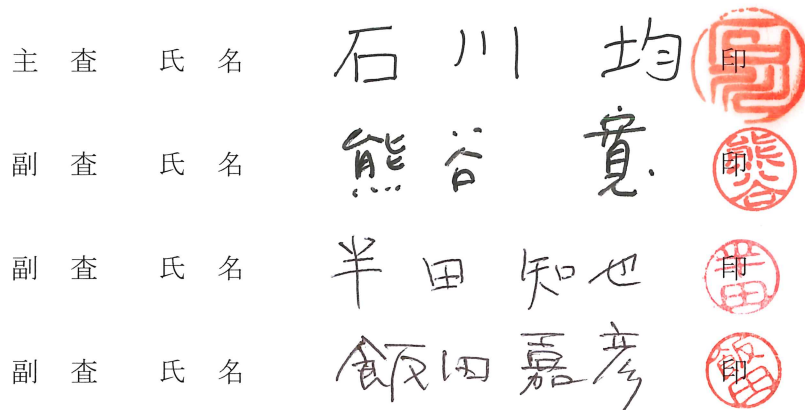 主査 氏名 石川 均 印
副査 氏名 熊谷 寛 印
副査 氏名 半田 知也 印
副査 氏名 飯田 嘉彦 印